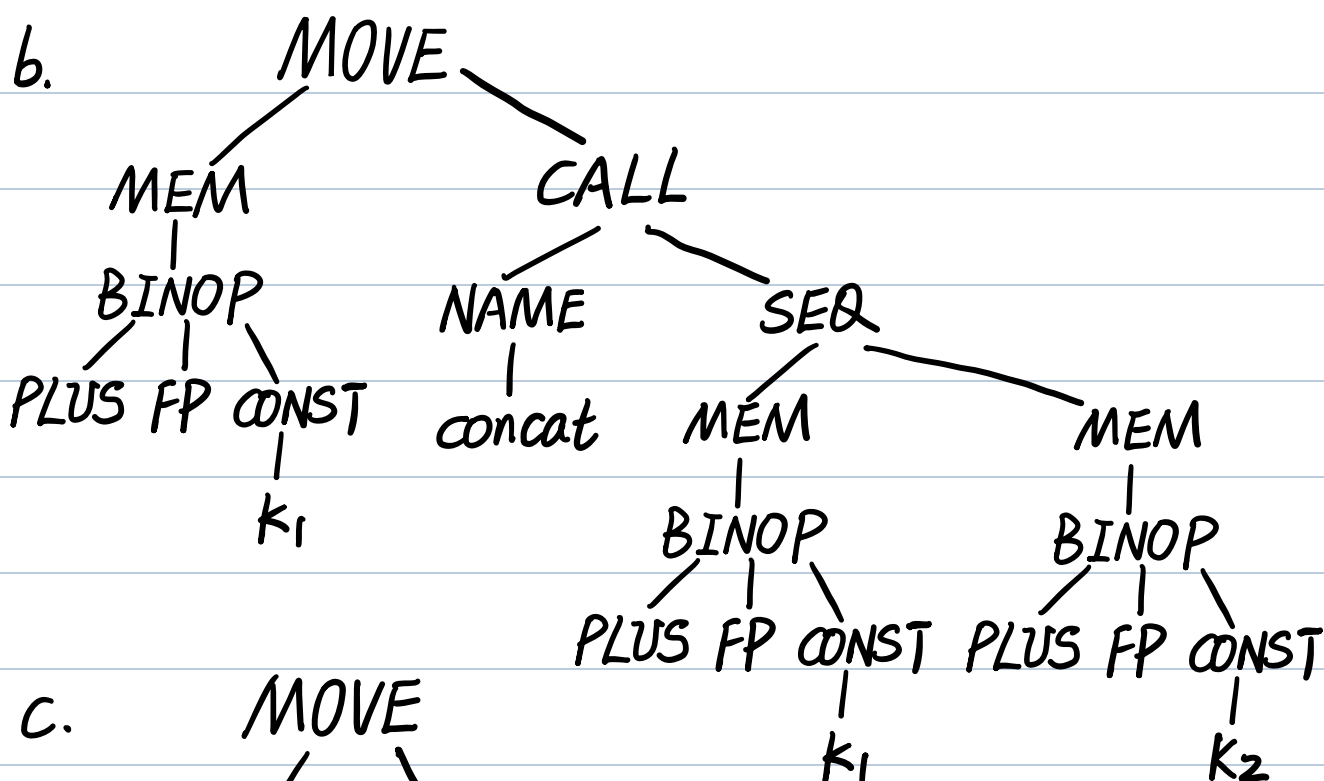 b. MOVE
MEM CALL
BINOP NAME SEQ
PLUS FP CONST concat MEM MEM
k1 BINOP BINOP
PLUS FP CONST PLUS FP CONST
c. MOVE
k1 k2